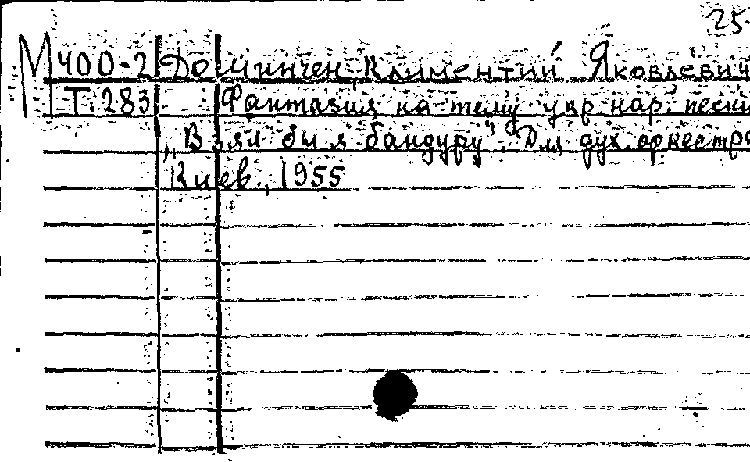 25
М 400-2 Доминчен, Климентий Яковлевич
Т. 283 Фантазия на тему укр. нар. песни
„Взял бы я бандуру". Для дух. оркестра
Киев, 1955